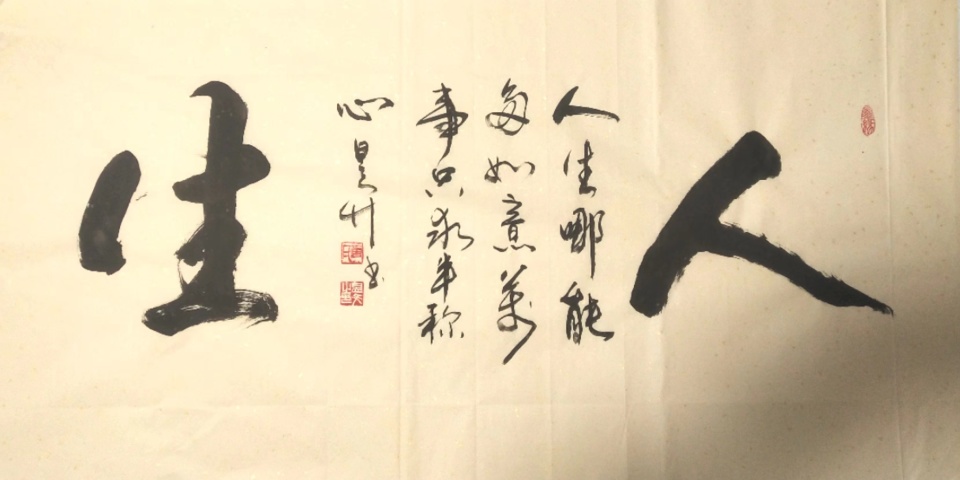 人生
人生哪能
多如意萬
事只求半称
心
书